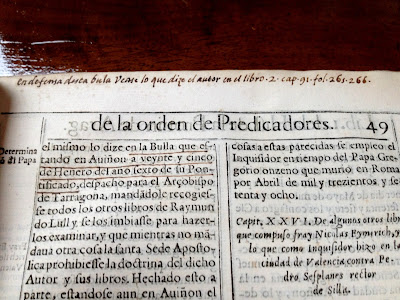 En defensa desta bula Vease lo que dize el autor en el libro. 2. cap. 91. fol. 265. 266.
de la orden de Predicadores. 49
Determina
el mismo lo dize en la Bulla que es-
tando en Auiñon a veynte y cinco
de Henero del año sexto de su Pon-
tificado, despacho para el Arçobispo
de Tarragona, mandadole recogies-
se todos los otros libros de Raymun
do Lull y se los imbiasse para hazer-
los examinar, y que mientras no má-
daua otra cosa la santa Sede Aposto-
lica prohibiesse la doctrina del dicho
Autor y sus libros. Hechado esto a
parte, estandose aun en Auiñon el
cosas a estas parecidas se empleo el
Inquisidor en tiempo del Papa Gre-
gorio onzeno que murio en Roma
por Abril de mil y trezientos y se-
tenta y ocho.
Capit. XXVI. De algunos otros libros
que compuso fray Nicolas Eymerich, y
lo que como Inquisidor hizo en la
ciudad de Valencia contra Pe-
dro Sesplanes rector
de Silla.